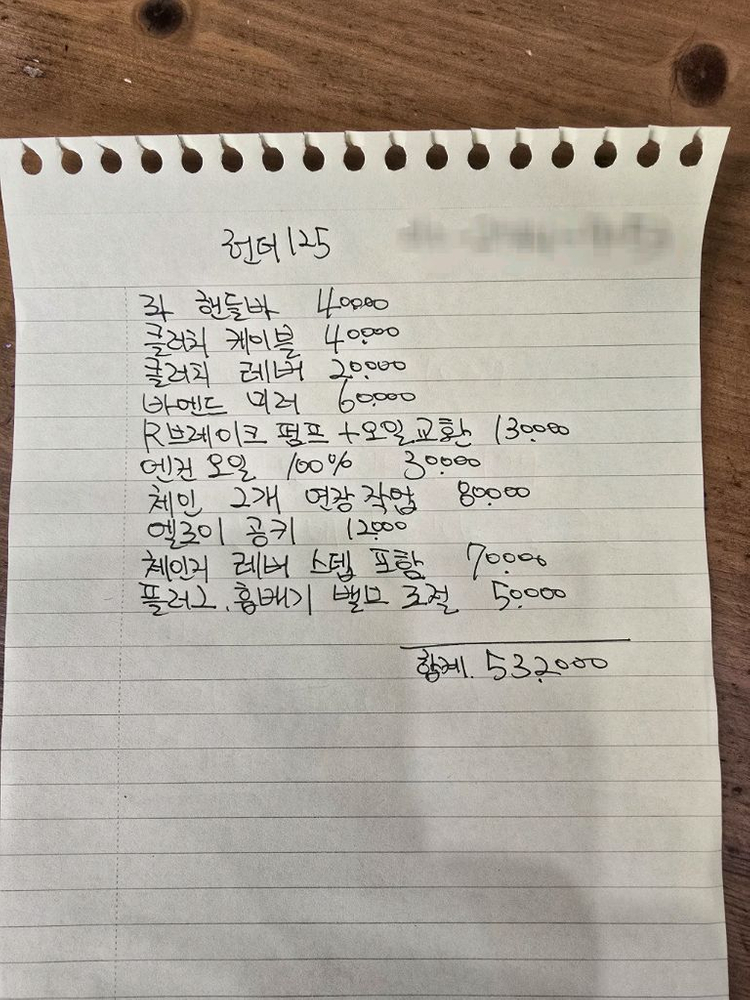 헌터125
좌 핸들바 40,000
클러치 케이블 40,000
클러치 레버 20,000
바엔드 미러 60,000
R브레이크 펌프+오일교환 130,000
엔진오일 100% 30,000
체인 2개 연장작업 80,000
엘로이 공키 12,000
체인지 레버 스텝 포함 70,000
플러그, 흡배기 밸브 조절 50,000
합계. 532,000